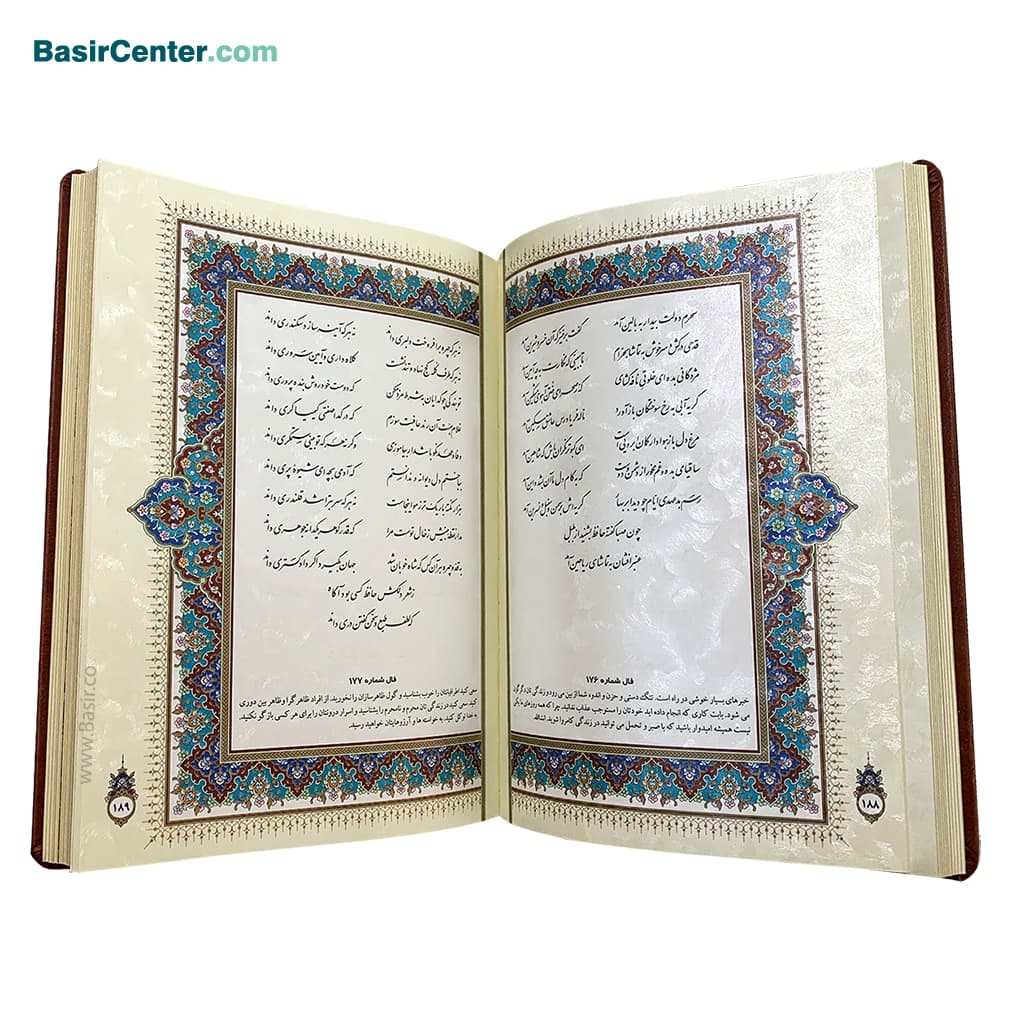 BasirCenter.com
سحرم دولت بیدار به بالین آمد گفت برخیز که آن خسرو شیرین آمد
قدحی درکش و سرخوش به تماشا بخرام تا ببینی که نگارت به چه آیین آمد
مژدگانی بده ای خلوتی نافه گشای که ز صحرای ختن آهوی مشکین آمد
گریه آبی به رخ سوختگان باز آورد ناله فریادرس عاشق مسکین آمد
مرغ دل باز هوادار کمان ابرویی است ای کبوتر نگران باش که شاهین آمد
ساقیا می بده و غم مخور از دشمن و دوست که به کام دل ما آن بشد و این آمد
رسم بدعهدی ایام چو دید ابر بهار گریه اش بر سمن و سنبل و نسرین آمد
چون صبا گفته حافظ بشنید از بلبل
عنبر افشان به تماشای ریاحین آمد
فال شماره ۱۷۶
خبرهای بسیار خوشی در راه است. تنگ دستی و حزن و اندوه شما از بین می رود و زندگی تان دگرگون
می شود. بابت کاری که انجام داده اید خودتان را مستوجب عذاب ندانید. چرا که همه روزهای ما یکی
نیست همیشه امیدوار باشید که با صبر و تحمل می توانید در زندگی کامروا شوید. انشاالله
۱۸۸
نه هر که چهره برافروخت دلبری داند نه هر که آینه سازد سکندری داند
نه هر که طرف کله کج نهاد و تند نشست کلاه داری و آیین سروری داند
تو بندگی چو گدایان به شرط مزد مکن که دوست خود روش بنده پروری داند
غلام همت آن رند عافیت سوزم که در گدا صفتی کیمیاگری داند
وفا و عهد نکو باشد ار بیاموزی وگرنه هر که تو بینی ستمگری داند
بباختم دل دیوانه و ندانستم که آدمی بچه ای شیوه پری داند
هزار نکته باریکتر ز مو اینجاست نه هر که سر بتراشد قلندری داند
مدار نقطه بینش ز خال توست مرا که قدر گوهر یکدانه جوهری داند
به قد و چهره هر آن کس که شاه خوبان شد جهان بگیرد اگر دادگستری داند
ز شعر دلکش حافظ کسی بود آگاه
که لطف طبع و سخن گفتن دری داند
فال شماره ۱۷۷
سعی کنید اطرافیانتان را خوب بشناسید و گول ظاهرسازان را نخورید. از افراد ظاهر گرا و ظاهر بین دوری
کنید. سعی کنید در زندگی تان محرم و نامحرم را بشناسید و اسرار درونتان را برای هر کسی بازگو نکنید.
به خدا توکل کنید به خواسته ها و آرزوهایتان خواهید رسید.
۱۸۹
www.Basir.co